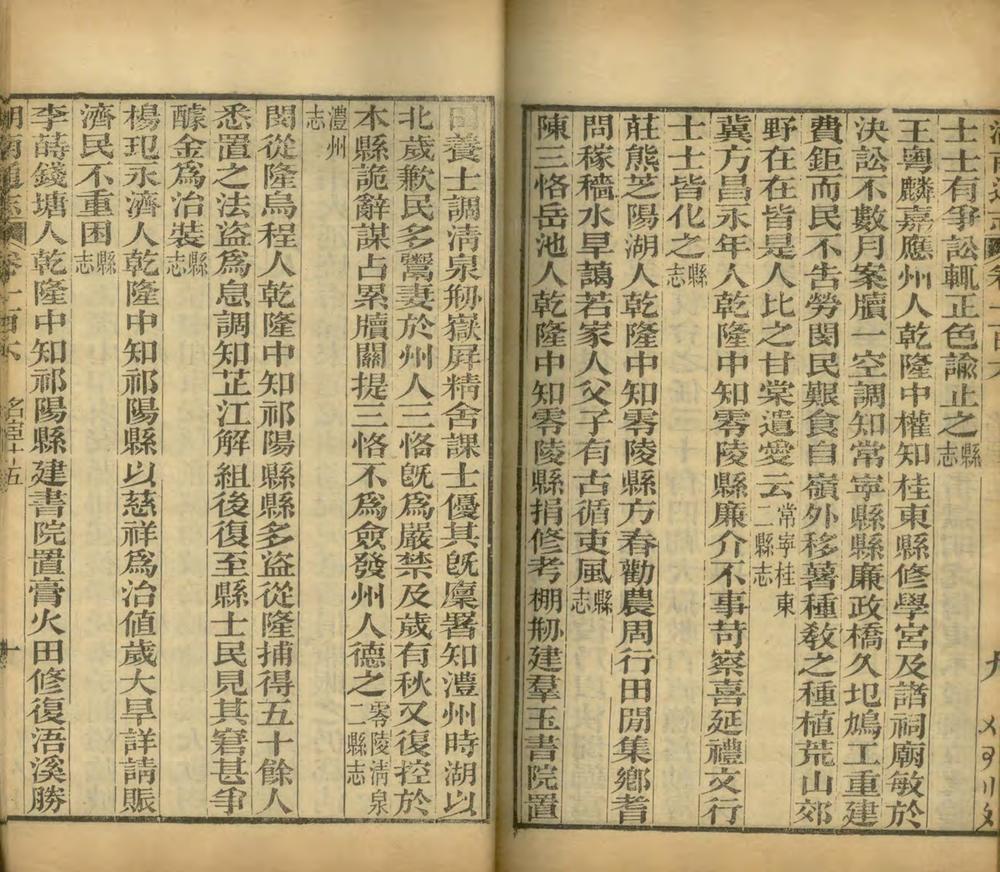 士士有爭訟輒正色諭止之縣志
王粵麟嘉應州人乾隆中權知桂東縣修學宮及諸祠廟敏於
決訟不數月案牘一空調知常寧縣縣廉政橋久圮鳩工重建
費鉅而民不吿勞閔民艱食自嶺外移薯種敎之種植荒山郊
野在在皆是人比之甘棠遺愛云常寧桂東二縣志
冀方昌永年人乾隆中知零陵縣廉介不事苛察喜延禮文行
士士皆化之縣志
莊熊芝陽湖人乾隆中知零陵縣方春勸農周行田閒集鄕耆
問稼穡水旱藹若家人父子有古循吏風縣志
陳三恪岳池人乾隆中知零陵縣捐修考棚刱建羣玉書院置
田養士調淸泉刱嶽屛精舍課士優其旣廩署知澧州時湖以
北歲歉民多鬻妻於州人三恪旣爲嚴禁及歲有秋又復控於
本縣詭辭謀占累牘關提三恪不爲僉發州人德之零陵淸泉二縣志
澧州志
閔從隆烏程人乾隆中知祁陽縣縣多盜從隆捕得五十餘人
悉置之法盜爲息調知芷江解組後復至縣士民見其窘甚爭
醵金爲治裝縣志
楊玘永濟人乾隆中知祁陽縣以慈祥爲治値歲大旱詳請賑
濟民不重困縣志
李蒔錢塘人乾隆中知祁陽縣建書院置膏火田修復浯溪勝
湖南通志 卷一百六 名宦十五 一